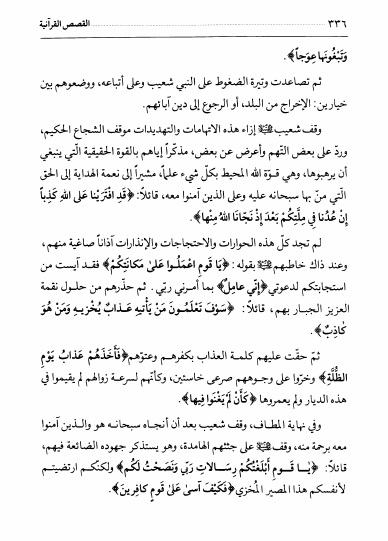 ٣٣٦ القصص القرآنية
وَتَبْغُونَها عِوَجاً﴾.
ثم تصاعدت وتيرة الضغوط على النبي شعيب وعلى أتباعه، ووضعوهم بين
خيارين: الإخراج من البلد، أو الرجوع إلى دين آبائهم.
وقف شعيب ﷺ إزاء هذه الاتهامات والتهديدات موقف الشجاع الحكيم،
وردّ على بعض التّهم وأعرض عن بعض، مذكّراً إياهم بالقوة الحقيقية الّتي ينبغي
أن يرهبوها، وهي قوّة الله المحيط بكلّ شيء علماً، مشيراً إلى نعمة الهداية إلى الحق
الّتي منّ بها سبحانه عليه وعلى الذين آمنوا معه، قائلاً: ﴿قَدِ افْتَرَيْنا عَلَى اللهِ كَذِباً
إِنْ عُدْنا في مِلَّتِكُمْ بَعْدَ إِذْ نَجّانَا اللهُ مِنْها﴾.
لم تجد كلّ هذه الحوارات والاحتجاجات والإنذارات آذاناً صاغية منهم،
وعند ذاك خاطبهم ﷺ بقوله: ﴿يَا قَومِ اعْمَلُوا عَلىٰ مَكانَتِكُمْ﴾ فقد آيست من
استجابتكم لدعوتي ﴿إِنّي عامِلٌ﴾ بما أمرني ربّي. ثم حذّرهم من حلول نقمة
العزيز الجبار بهم، قائلاً: ﴿سَوْفَ تَعْلَمُونَ مَنْ يَأْتيهِ عَذابٌ يُخْزيهِ وَمَنْ هُوَ
كاذِبٌ﴾.
ثمّ حقّت عليهم كلمة العذاب بكفرهم وعتوّهم ﴿فَأَخَذَهُمْ عَذابُ يَوْمِ
الظُّلَّةِ﴾ وخرّوا على وجوههم صرعى خاسئين، وكأنّهم لسرعة زوالهم لم يقيموا في
هذه الديار ولم يعمروها ﴿كَأَنْ لَمْ يَغْنَوْا فيها﴾.
وفي نهاية المطاف، وقف شعيب بعد أن أنجاه سبحانه هو والذين آمنوا
معه برحمة منه، وقف ﷺ على جثثهم الهامدة، وهو يستذكر جهوده الضائعة فيهم،
قائلاً: ﴿يا قَومِ أَبْلَغْتُكُمْ رِسالاتِ رَبّي وَنَصَحْتُ لَكُمْ﴾ ولكنّكم ارتضيتم
لأنفسكم هذا المصير المُخزي ﴿فَكَيْفَ آسىٰ عَلىٰ قَومٍ كافِرينَ﴾.